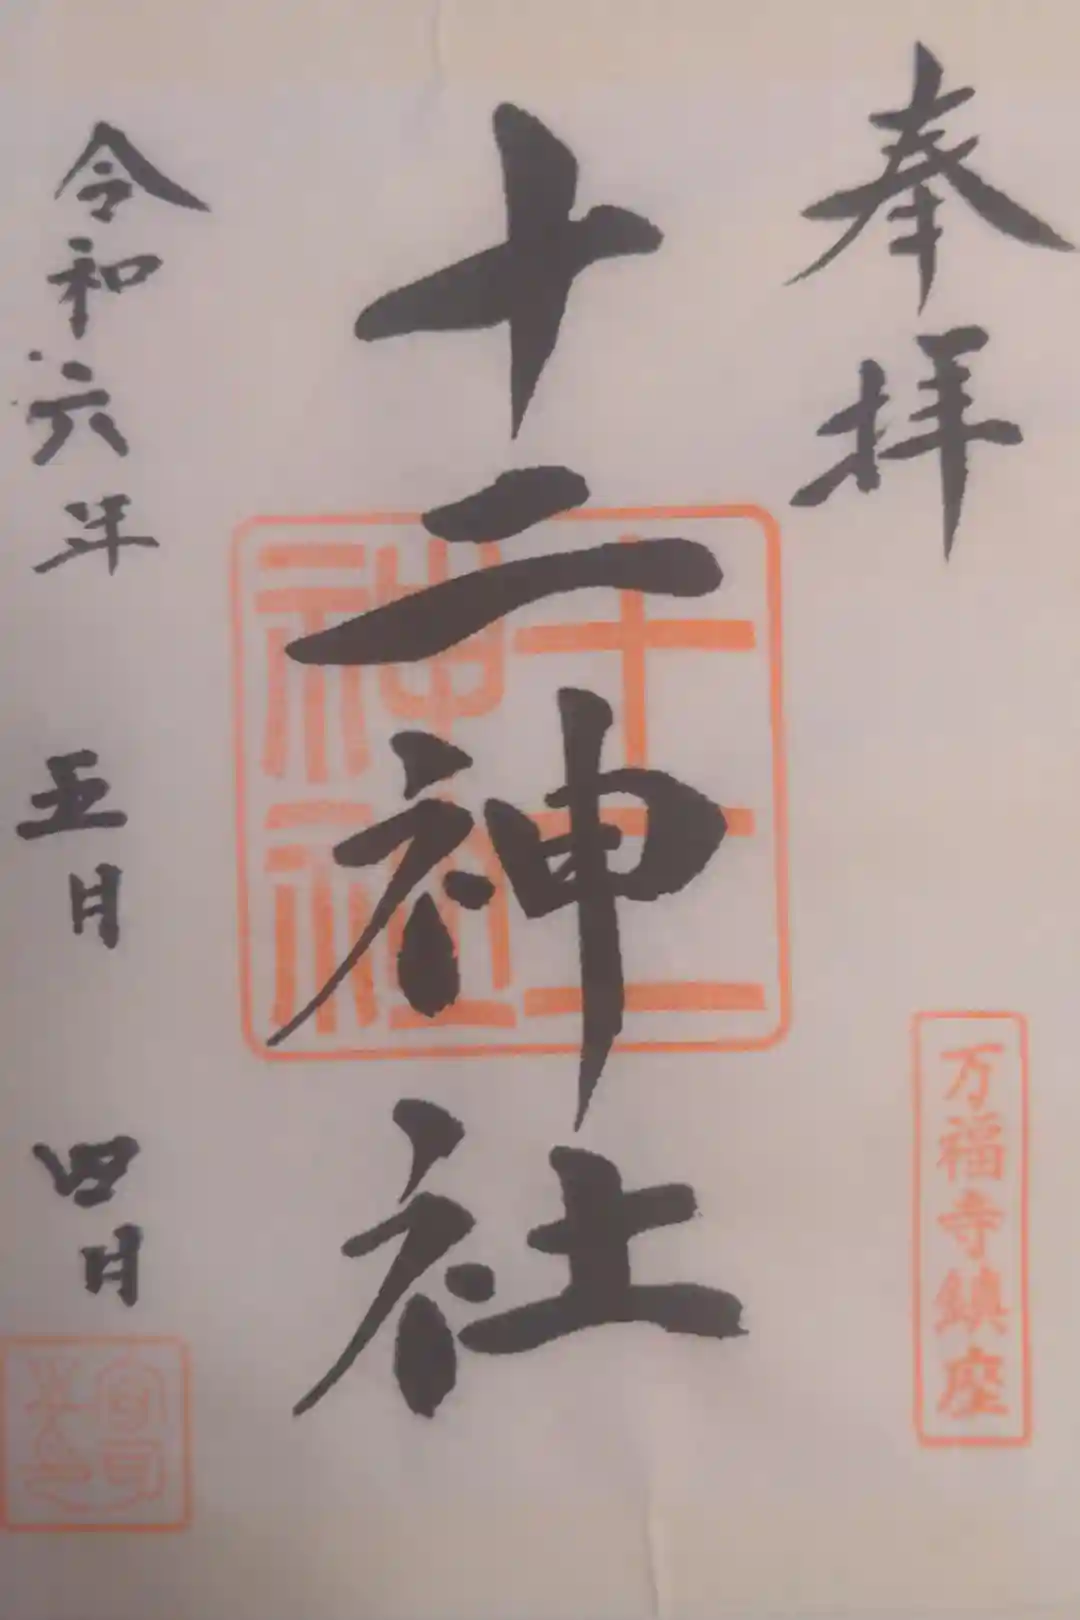 奉拝
万福寺鎮座
十二神社
十二
神社
令和六年 五月 四日
宮司
之印